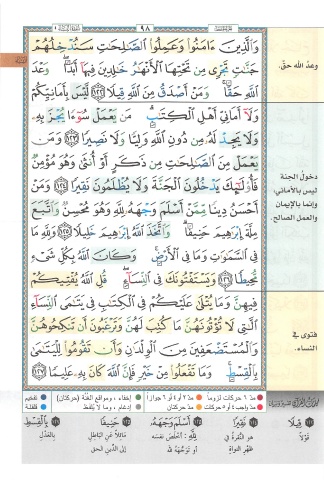 ٩٨
وَٱلَّذِينَ ءَامَنُوا۟ وَعَمِلُوا۟ ٱلصَّـٰلِحَـٰتِ سَنُدْخِلُهُمْ
جَنَّـٰتٍ تَجْرِى مِن تَحْتِهَا ٱلْأَنْهَـٰرُ خَـٰلِدِينَ فِيهَآ أَبَدًا ۖ وَعْدَ
ٱللَّهِ حَقًّا ۚ وَمَنْ أَصْدَقُ مِنَ ٱللَّهِ قِيلًا ١٢٢ لَّيْسَ بِأَمَانِيِّكُمْ
وَلَآ أَمَانِىِّ أَهْلِ ٱلْكِتَـٰبِ ۗ مَن يَعْمَلْ سُوٓءًا يُجْزَ بِهِۦ
وَلَا يَجِدْ لَهُۥ مِن دُونِ ٱللَّهِ وَلِيًّا وَلَا نَصِيرًا ١٢٣ وَمَن
يَعْمَلْ مِنَ ٱلصَّـٰلِحَـٰتِ مِن ذَكَرٍ أَوْ أُنثَىٰ وَهُوَ مُؤْمِنٌ
فَأُو۟لَـٰٓئِكَ يَدْخُلُونَ ٱلْجَنَّةَ وَلَا يُظْلَمُونَ نَقِيرًا ١٢٤ وَمَنْ
أَحْسَنُ دِينًا مِّمَّنْ أَسْلَمَ وَجْهَهُۥ لِلَّهِ وَهُوَ مُحْسِنٌ وَٱتَّبَعَ
مِلَّةَ إِبْرَٰهِيمَ حَنِيفًا ۗ وَٱتَّخَذَ ٱللَّهُ إِبْرَٰهِيمَ خَلِيلًا ١٢٥ وَلِلَّهِ مَا
فِى ٱلسَّمَـٰوَٰتِ وَمَا فِى ٱلْأَرْضِ ۚ وَكَانَ ٱللَّهُ بِكُلِّ شَىْءٍ
مُّحِيطًا ١٢٦ وَيَسْتَفْتُونَكَ فِى ٱلنِّسَآءِ ۖ قُلِ ٱللَّهُ يُفْتِيكُمْ
فِيهِنَّ وَمَا يُتْلَىٰ عَلَيْكُمْ فِى ٱلْكِتَـٰبِ فِى يَتَـٰمَى ٱلنِّسَآءِ
ٱلَّـٰتِى لَا تُؤْتُونَهُنَّ مَا كُتِبَ لَهُنَّ وَتَرْغَبُونَ أَن تَنكِحُوهُنَّ
وَٱلْمُسْتَضْعَفِينَ مِنَ ٱلْوِلْدَٰنِ وَأَن تَقُومُوا۟ لِلْيَتَـٰمَىٰ
بِٱلْقِسْطِ ۚ وَمَا تَفْعَلُوا۟ مِنْ خَيْرٍ فَإِنَّ ٱللَّهَ كَانَ بِهِۦ عَلِيمًا ١٢٧
وعدُ الله حق.
دخولُ الجنة
ليس بالأماني،
وإنما بالإيمان
والعمل الصالح.
فتوى في
النساء.
مدّ ٦ حركات لزوماً مدّ ٢ أو ٤ أو ٦ جوازاً إخفاء، ومواقع الغُنَّة (حركتان) تفخيم
مدّ واجب ٤ أو ٥ حركات مدّ حركتان إدغام، وما لا يُلفَظ قلقلة
قِيلًا نَقِيرًا أَسْلَمَ وَجْهَهُۥ حَنِيفًا بِٱلْقِسْطِ
قَوْلاً هو النُّقرةُ في لِلَّهِ: أخلَصَ نفسَه مائلاً عن الباطلِ بالعَدْلِ
ظهرِ النواةِ أو توجُّهَهُ لله إلى الدِّينِ الحق